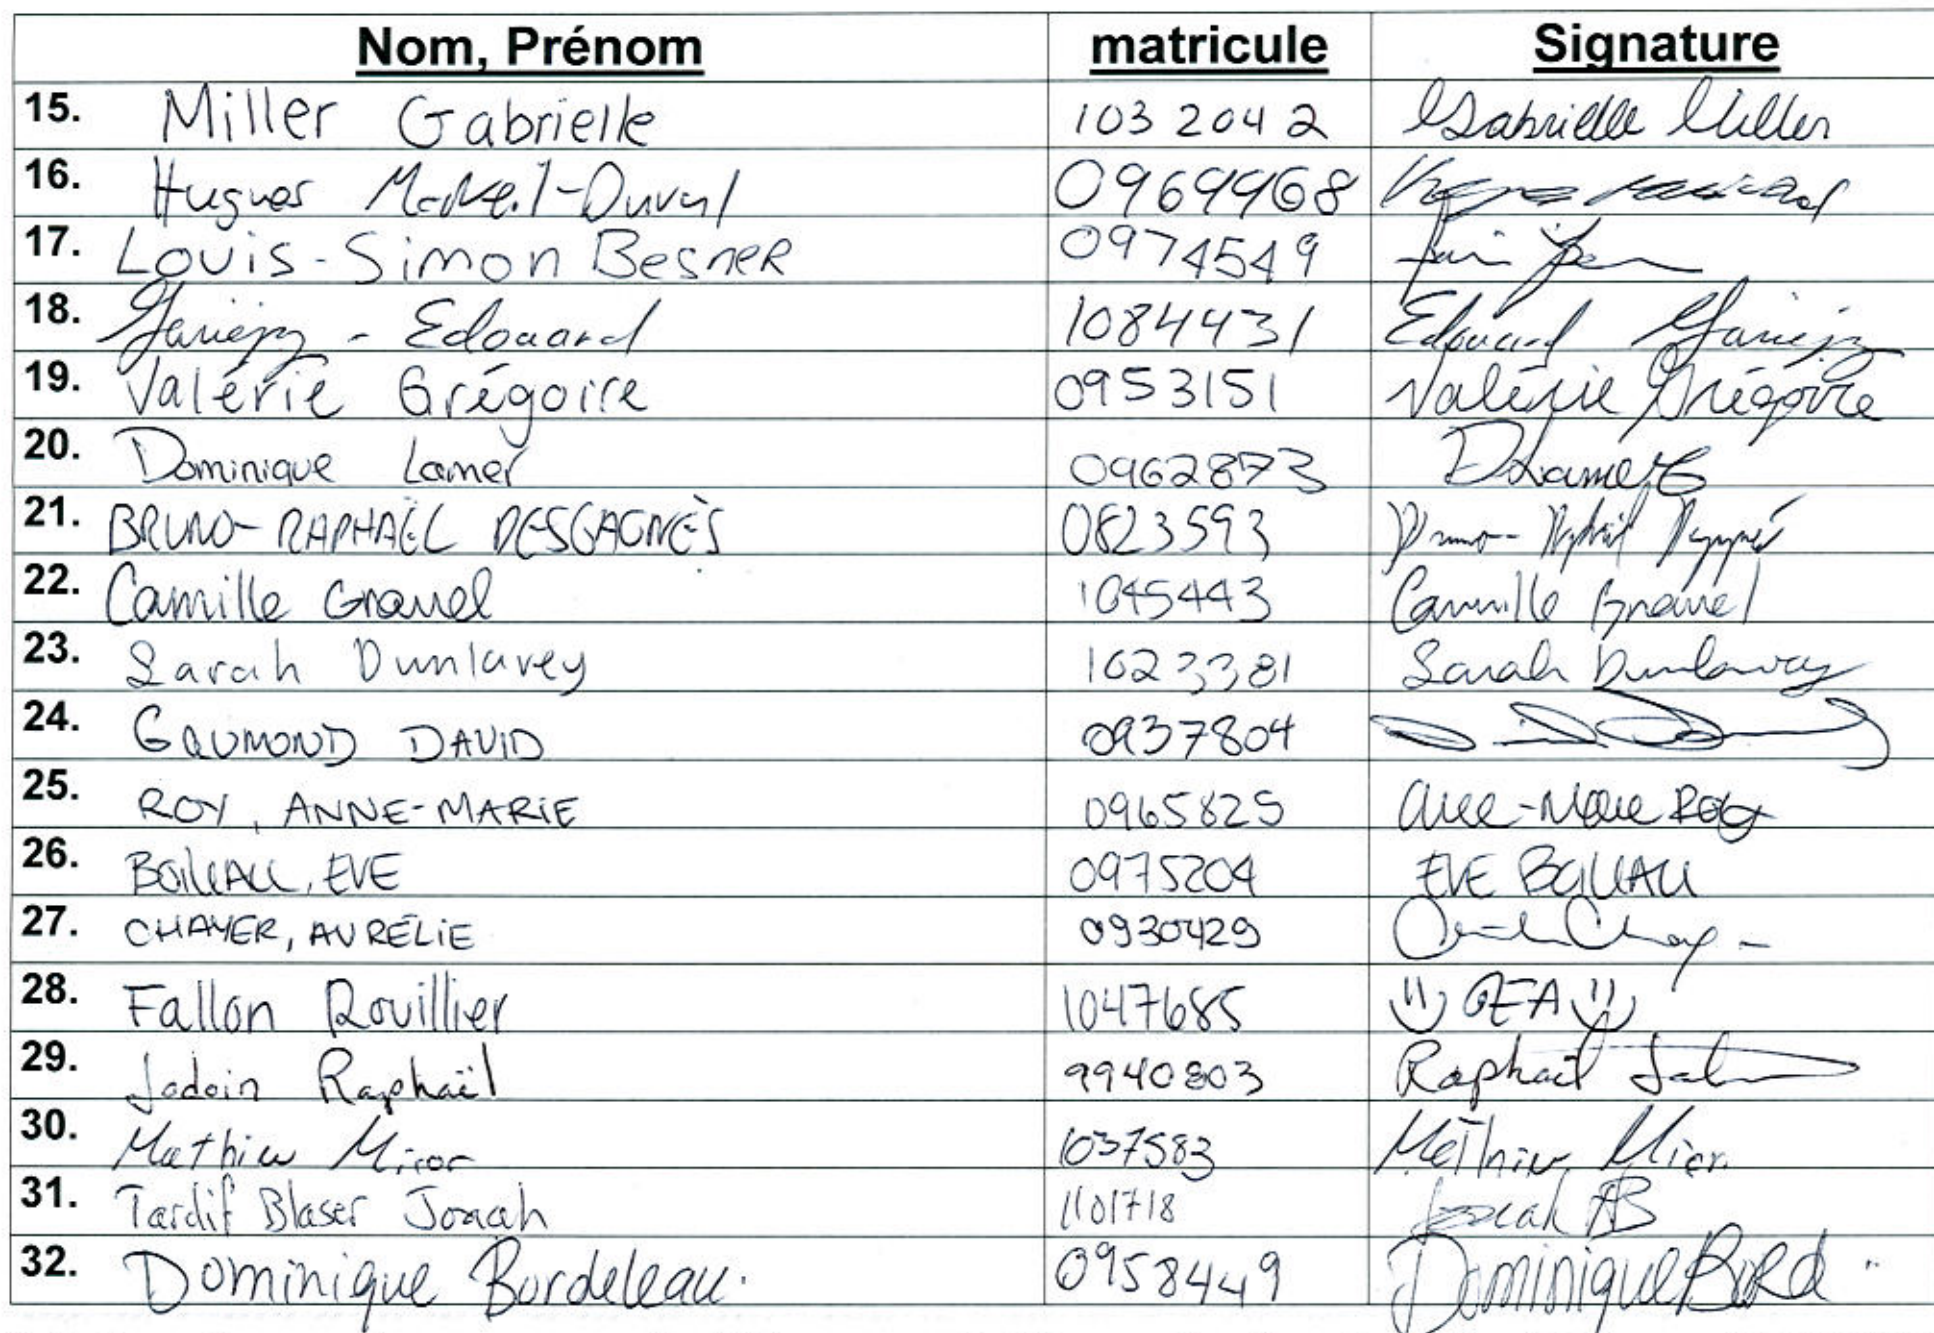 Nom, Prénom matricule Signature
15. Miller Gabrielle 1032042 Gabrielle Miller
16. Hugues 0969968
17. Louis-Simon Besner 0974549
18. Gariépy - Edouard 1084431 Edouard Gariépy
19. Valérie Grégoire 0953151 Valérie Grégoire
20. Dominique Lamer 0962873 DLamer
21. BRUNO-RAPHAËL DESGAGNÉS 0823593
22. Camille Gravel 1045443 Camille Gravel
23. Sarah Dunlavey 1023381 Sarah Dunlavey
24. GAUMOND DAVID 0937804
25. ROY, ANNE-MARIE 0965825 Anne-Marie Roy
26. BOILEAU, EVE 0975204 EVE BOILEAU
27. CHAYER, AURÉLIE 0930429
28. Fallon Rouillier 1047685
29. Jodoin Raphaël 9940803 Raphaël
30. Mathieu 1037583 Mathieu
31. Tardif Blaser 1101718
32. Dominique Bordeleau. 0958449 Dominique Bord